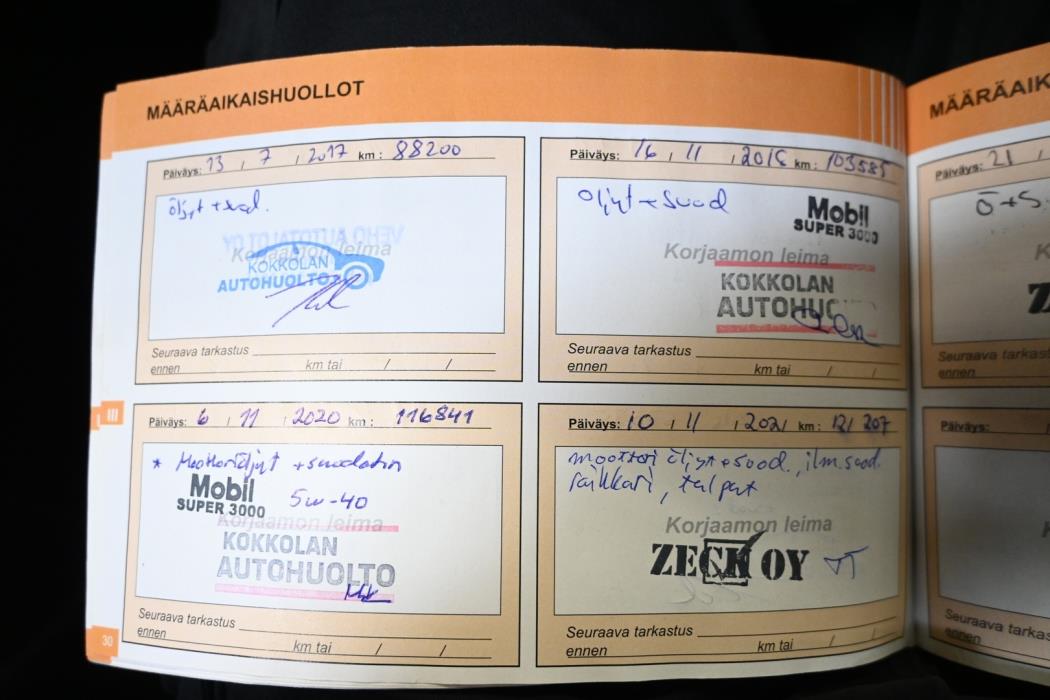 MÄÄRÄAIKAISHUOLLOT
Päiväys: 13 / 7 / 2017 km: 88200
öljyt + suod.
VEHO AUTOTALOT OY
Korjaamon leima
KOKKOLAN
AUTOHUOLTO
Seuraava tarkastus
ennen km tai / /
Päiväys: 16 / 11 / 2018 km: 103585
Öljyt + suod
Mobil
SUPER 3000
Korjaamon leima
KOKKOLAN
AUTOHUO
Seuraava tarkastus
ennen km tai / /
Päiväys: 6 / 11 / 2020 km: 116841
* Moottoriöljyt + suodatin
Mobil
SUPER 3000
5w-40
Korjaamon leima
KOKKOLAN
AUTOHUOLTO
Seuraava tarkastus
ennen km tai / /
Päiväys: 10 / 11 / 2021 km: 121 207
moottori öljyt + suod., ilm.suod.
raikkari, tulpat
Korjaamon leima
ZECK OY
Seuraava tarkastus
ennen km tai / /
30
III
MÄÄRÄAIK
Päiväys: 21 /
Ö + S.
Z
Seuraava tarkast
ennen
Päiväys:
Seuraava tarkas
ennen